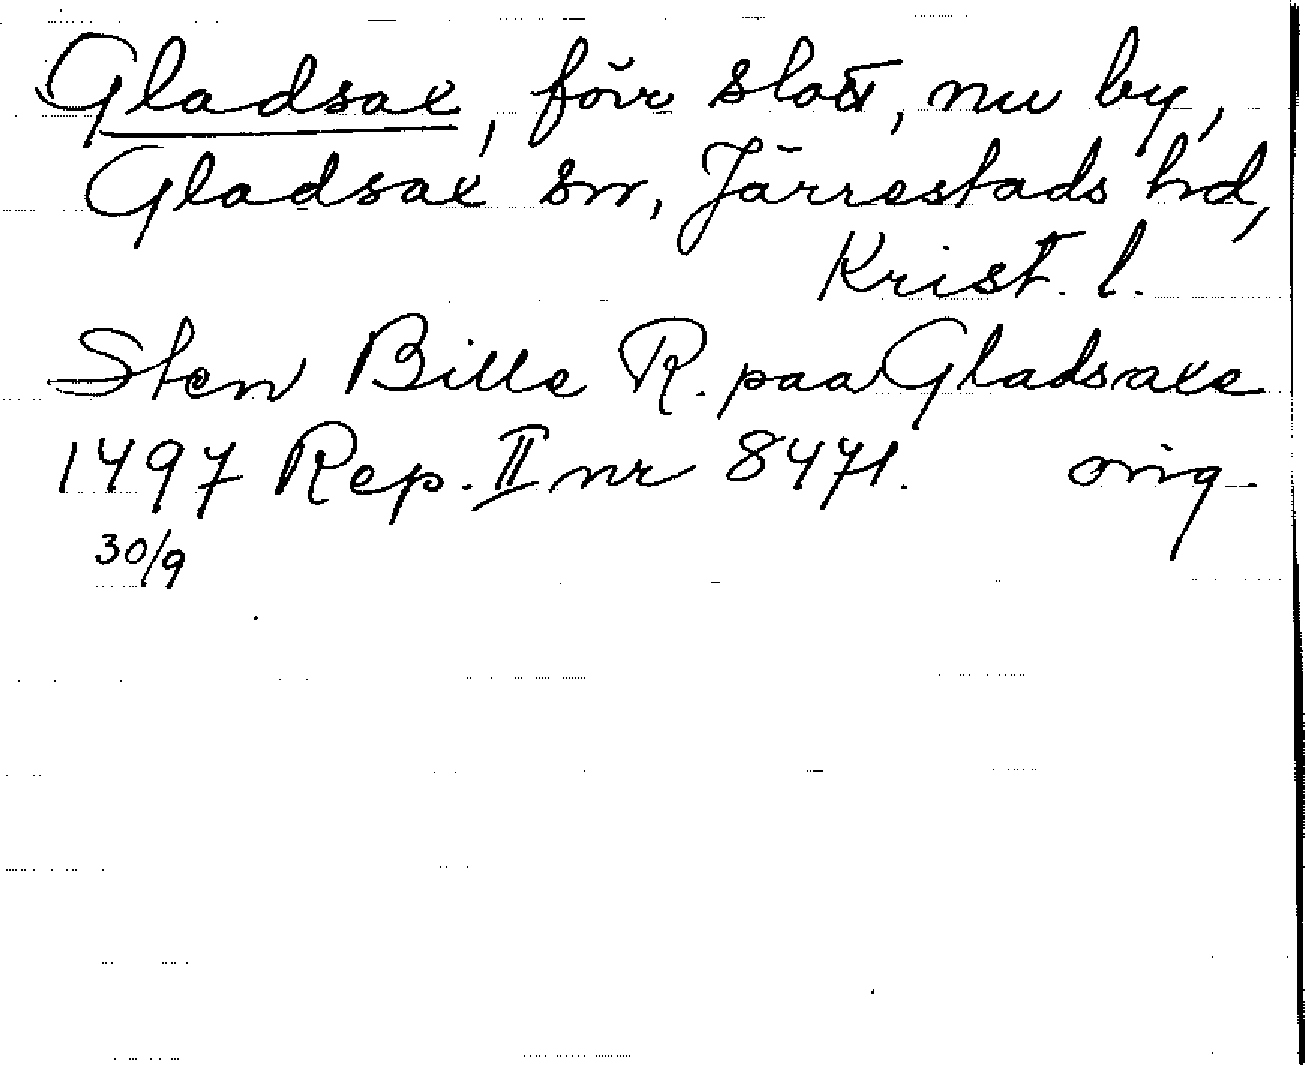 Gladsax, förr slott, nu by,
Gladsax sn, Järrestads hd,
Krist. l.
Sten Bille R. paa Gladsaxe
1497 Rep. II nr 8471. orig.
30/9